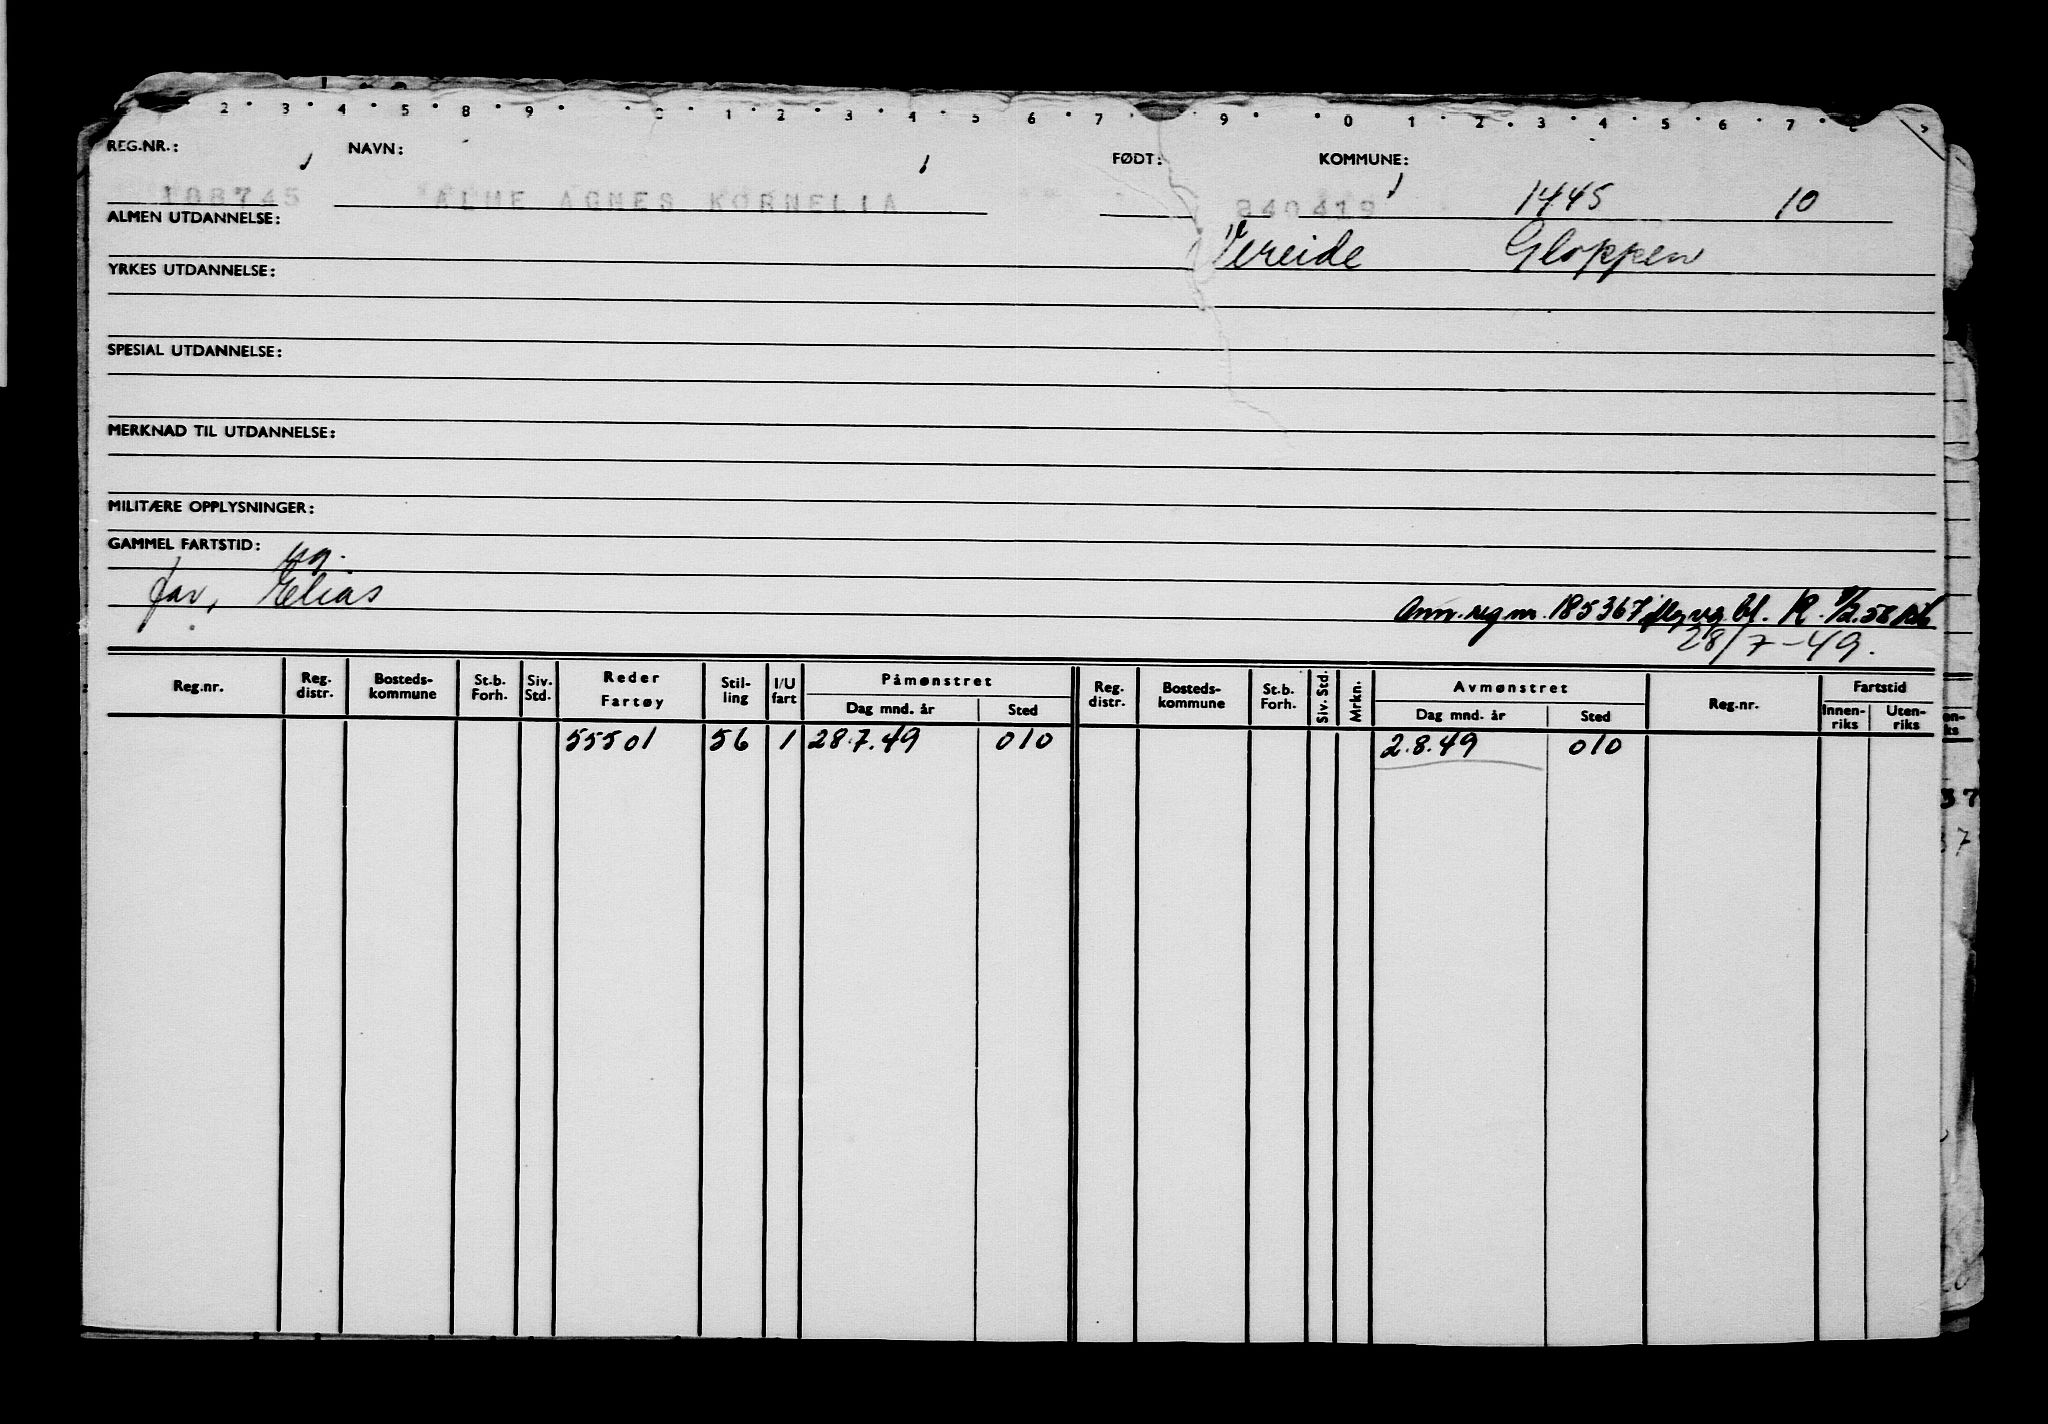 2 3 4 5 8 9 1 2 3 4 5 6 7 9 0 1 2 3 4 5 6 7
REG.NR.: NAVN: FØDT: KOMMUNE:
108745 ALME AGNES KORNELIA 840419 1445 10
ALMEN UTDANNELSE: Vereide Gloppen
YRKES UTDANNELSE:
SPESIAL UTDANNELSE:
MERKNAD TIL UTDANNELSE:
MILITÆRE OPPLYSNINGER:
GAMMEL FARTSTID: ug.
far, Elias
Ann. reg nr. 185367 bl. K. 58
28/7-49.
Reg.nr. Reg. distr. Bosteds-kommune St.b. Forh. Siv. Std. Reder Fartøy Stil-ling I/U fart Påmønstret Dag mnd. år Sted Reg. distr. Bosteds-kommune St.b. Forh. Siv. Std. Mrkn. Avmønstret Dag mnd. år Sted Reg.nr. Fartstid Innen-riks Uten-riks
55501 56 1 28.7.49 010 2.8.49 010